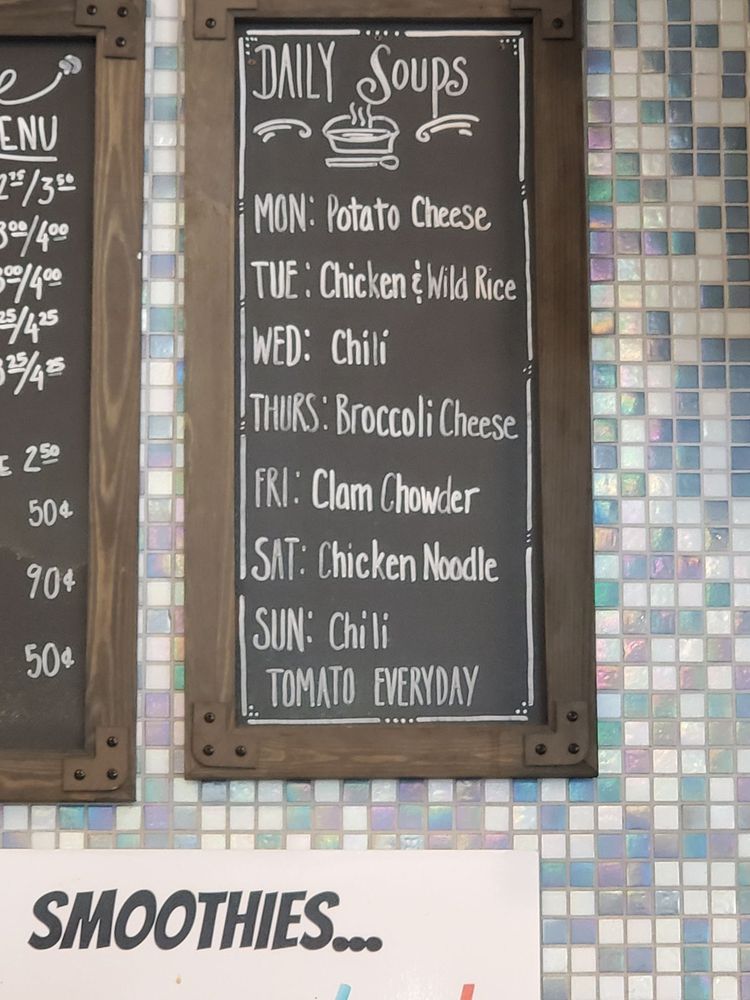 ENU
/3⁵⁰
/4⁰⁰
/4⁰⁰
/4²⁵
/4²⁵
2⁵⁰
50¢
90¢
50¢
DAILY Soups
MON: Potato Cheese
TUE: Chicken & Wild Rice
WED: Chili
THURS: Broccoli Cheese
FRI: Clam Chowder
SAT: Chicken Noodle
SUN: Chili
TOMATO EVERYDAY
SMOOTHIES...